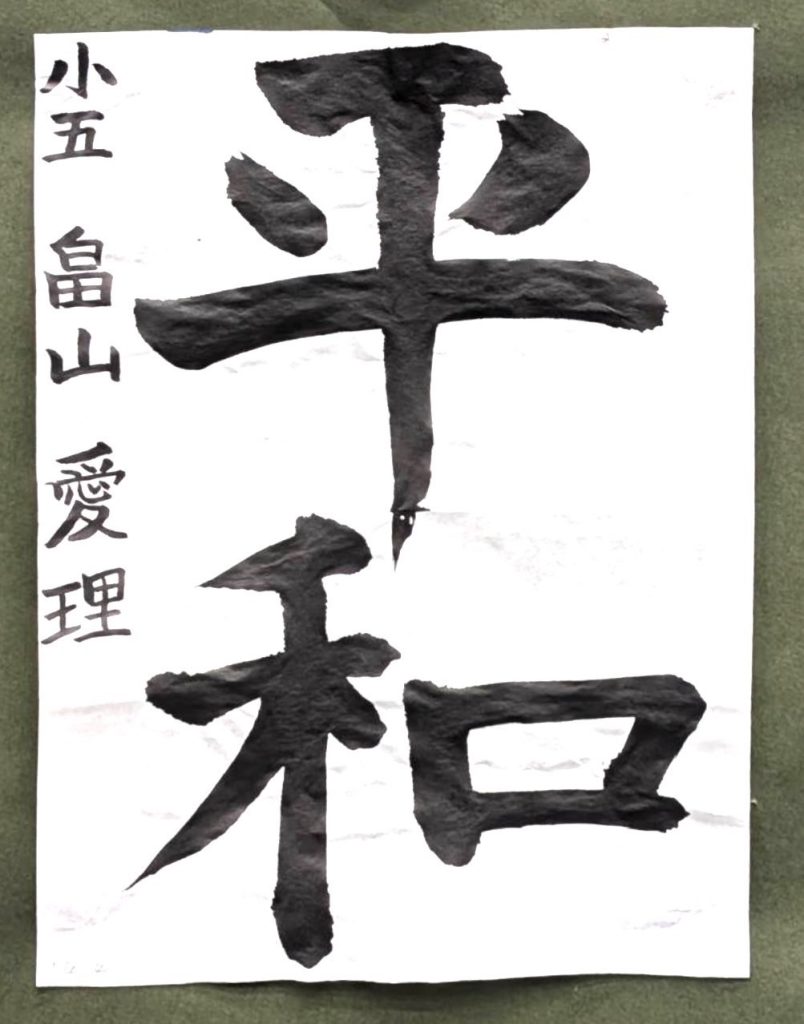 平和
小五 畠山 愛理